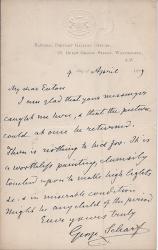 National Portrait Gallery Offices,
20, Great George Street, Westminster,
S.W.
9 day of April
My dear
I am glad that your messenger
caught me here, & that the picture
could at once be returned.
There is nothing to bid for. It is
a worthless painting, clumsily
touched upon to make high lights
&c. & in miserable condition
Might be any child of the period
Ever yours truly
George Scharf